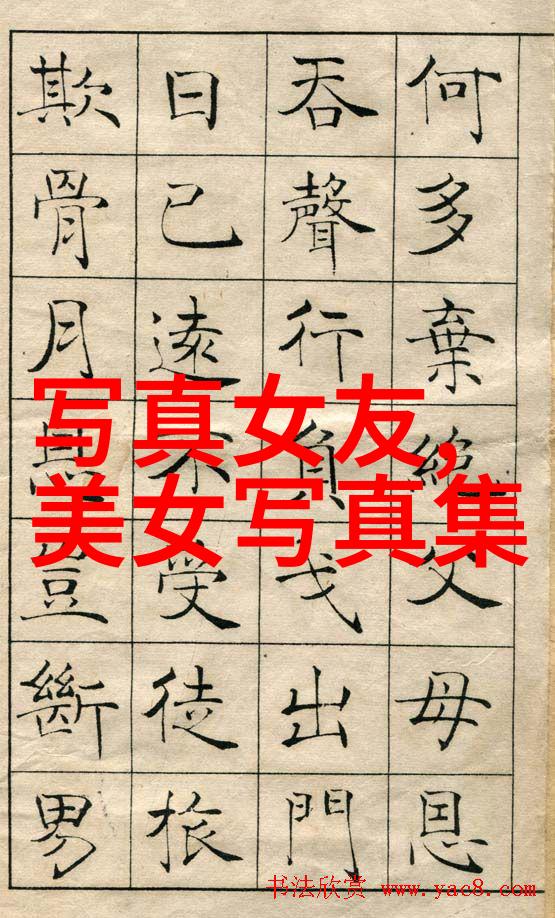 何多棄絕父母恩
吞聲行負戈出門
日已遠不受徒旅
欺骨月恩豈斷男
写真女友,
美女写真集
书法欣赏 www.yac8.com